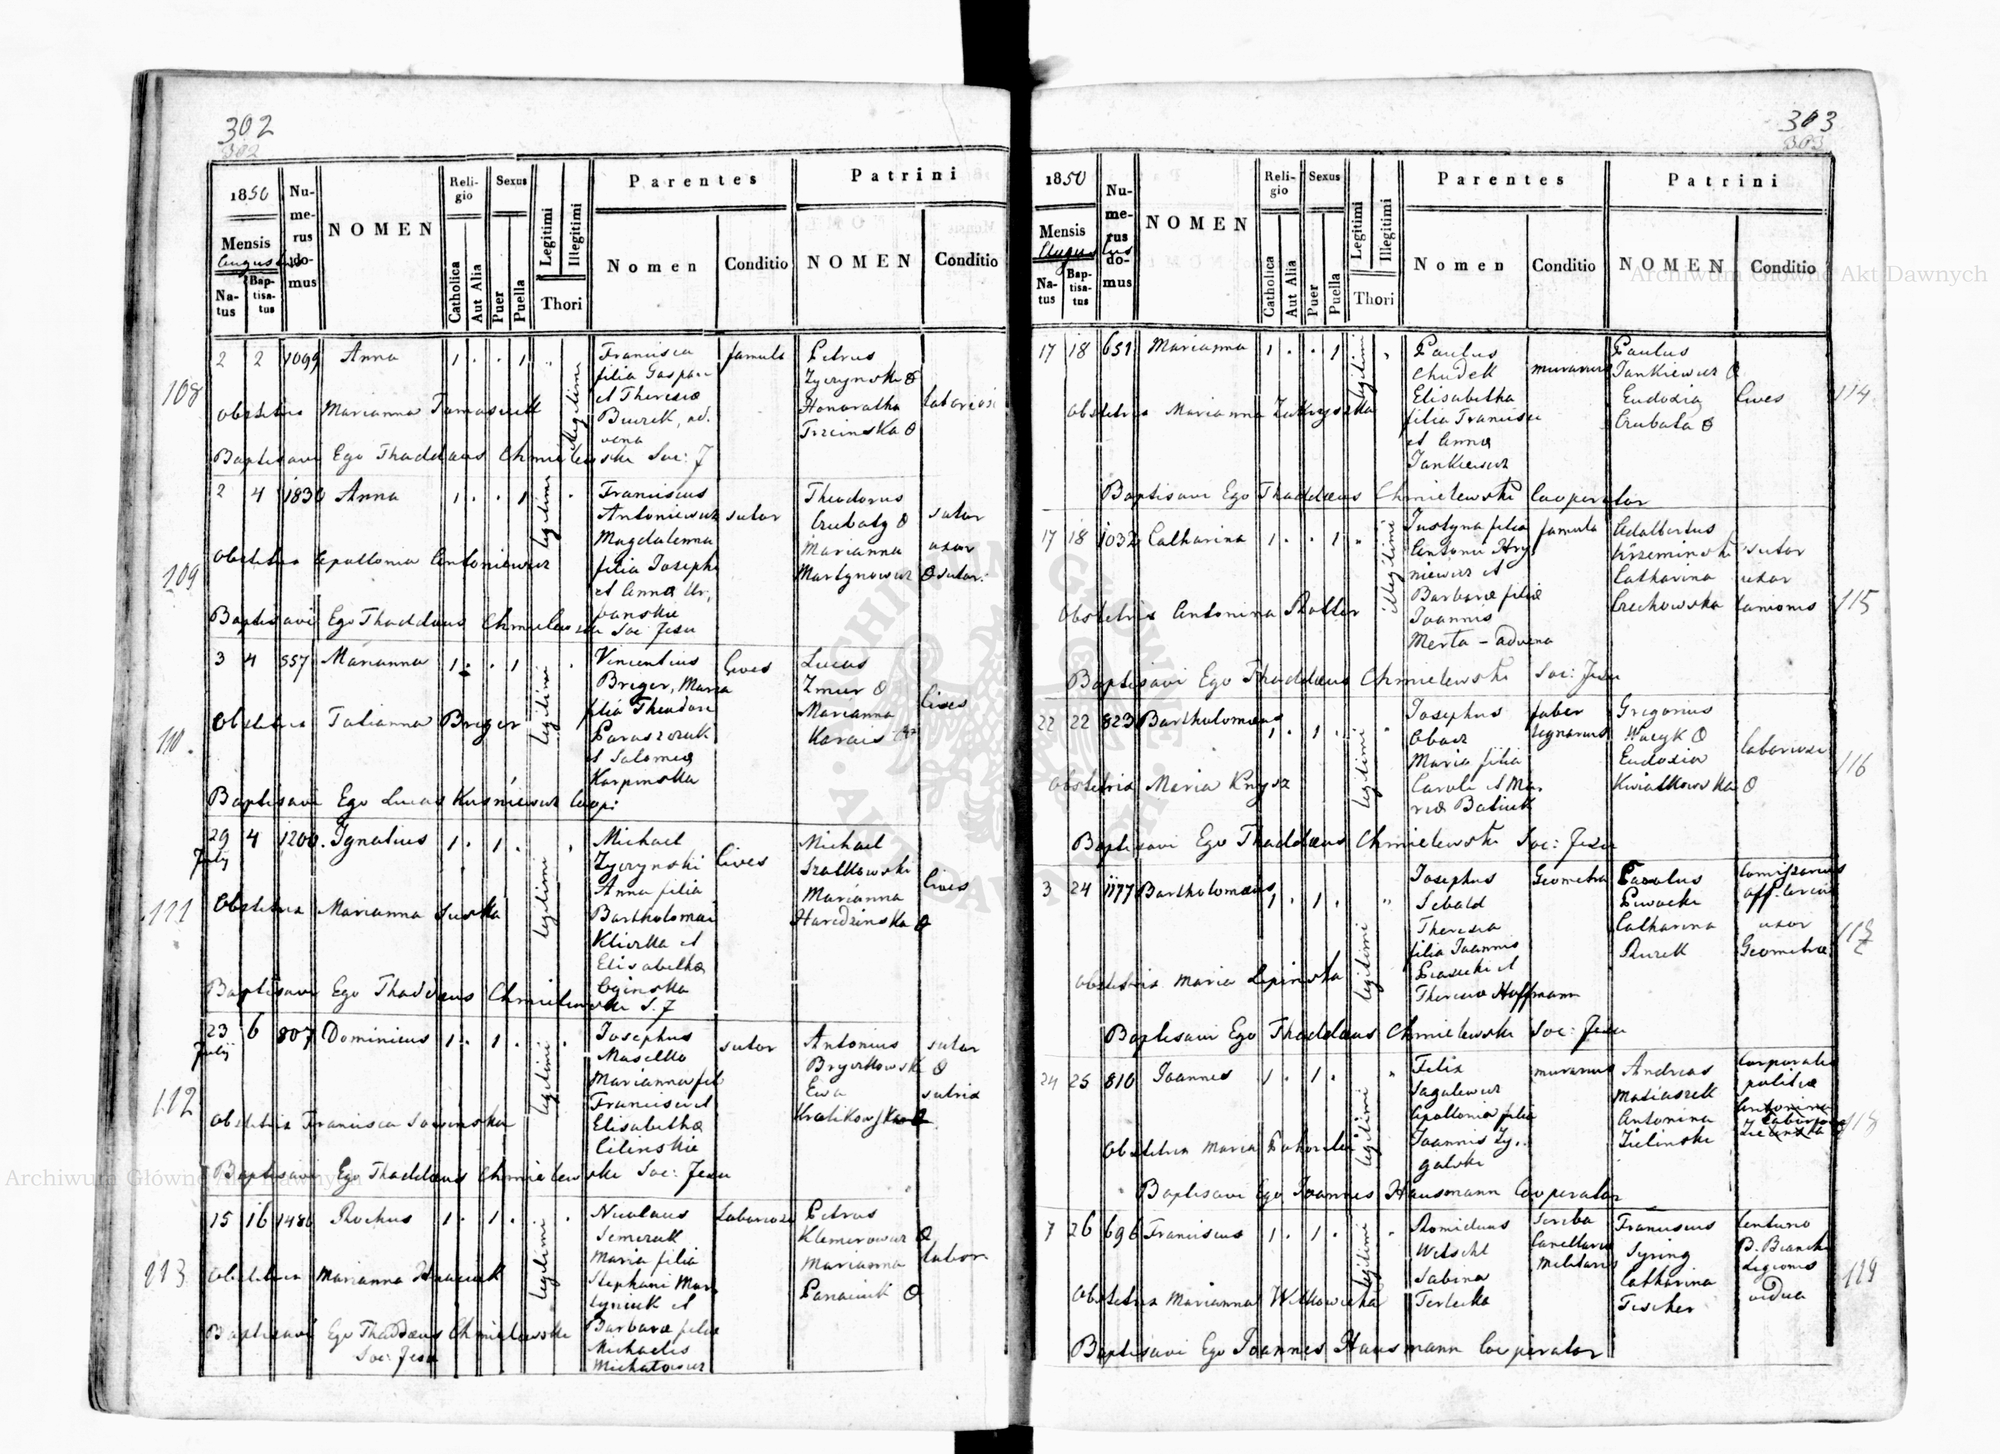 302
302
1850
Mensis
Augustus
Natus
Baptisatus
Numerus domus
NOMEN
Religio
Catholica
Aut Alia
Sexus
Puer
Puella
Legitimi
Illegitimi
Thori
Parentes
Nomen
Conditio
Patrini
NOMEN
Conditio
108
2 2 1099 Anna 1 . . 1 „ illegitimi
Francisca
filia Gaspari
et Theresiæ
Buczek, ad.
vena
famula
Petrus
Zyczynski
Honoratha
Trzcinska
laboriosi
Obstetrix Marianna Tomaszek
Baptisavi Ego Thaddæus Chmielewski Soc: J
109
2 4 1830 Anna 1 . . 1 legitimi .
Franciscus
Antoniewicz
Magdalenna
filia Josephi
et Annæ Ur,
banskie
sutor
Theodorus
Czubaty
Marianna
Martynowicz
sutor
uxor
sutori.
Obstetrix Apollonia Antoniewicz
Baptisavi Ego Thaddæus Chmielewski Soc: Jesu
110.
3 4 557 Marianna 1 . . 1 legitimi .
Vincentius
Breger, Maria
filia Theodori
Paraszczuk
et Salomeæ
Karpinska
Cives
Lucas
Zmur
Marianna
Karais
Cives
Obstetrix Tatianna Breger
Baptisavi Ego Lucas Kusniewicz Coop:
111
29 July 4 1200. Ignatius 1 . 1 . legitimi
Michael
Zyczynski
Anna filia
Bartholomæi
Kliszka et
Elisabethæ
Oginska
Cives
Michael
Szatkowski
Marianna
Haredzinska
Cives
Obstetrix Marianna Suska
Baptisavi Ego Thaddæus Chmielewski S. J
112
23 July 6 807 Dominicus 1 . 1 . legitimi .
Josephus
Masetko
Marianna fil
Francisci et
Elisabethæ
Cilinskie
sutor
Antonius
Bryczkowski
Ewa
Krolikowska
sutor
sutrix
Obstetrix Francisca Sosinska
Baptisavi Ego Thaddæus Chmielewski Soc: Jesu
113
15 16 1480 Rochus 1 . 1 . legitimi .
Nicolaus
Semczuk
Maria filia
Stephani Mar,
tyniuk et
Barbaræ filiæ
Michaelis
Michatowicz
Laboriosi
Petrus
Klemerowicz
Marianna
Panasiuk
labori
Obstetrix Marianna Hraciuk
Baptisavi Ego Thaddæus Chmielewski
Soc: Jesu
303
303
1850
Mensis
Augustus
Natus
Baptisatus
Numerus domus
NOMEN
Religio
Catholica
Aut Alia
Sexus
Puer
Puella
Legitimi
Illegitimi
Thori
Parentes
Nomen
Conditio
Patrini
NOMEN
Conditio
114
17 18 651 Marianna 1 . . 1 legitimi „
Paulus
Chudek
Elisabetha
filia Francisci
et Annæ
Jankiewicz
murarius
Paulus
Jankiewicz
Eudoxia
Czubata
Cives
Obstetrix Marianna Zakryszka
Baptisavi Ego Thaddæus Chmielewski Cooperator
115
17 18 1032 Catharina 1 . . 1 „ illegitimi
Justyna filia
Antonii Hry,
niewicz et
Barbaræ filiæ
Joannis
Merta - advena
famula
Adalbertus
Krzeminski
Catharina
Czechowska
sutor
uxor
lanionis
Obstetrix Antonina Rotter
Baptisavi Ego Thaddæus Chmielewski Soc: Jesu
116
22 22 823 Bartholomæus 1 . 1 . legitimi „
Josephus
Obacz
Maria filia
Caroli et Ma,
riæ Batiuk
faber
lignarius
Gregorius
Wacyk
Eudoxia
Kwiatkowska
laboriosi
Obstetrix Maria Knysz
Baptisavi Ego Thaddæus Chmielewski Soc: Jesu
117
3 24 1177 Bartholomæus 1 . 1 . legitimi „
Josephus
Sebald
Theresia
filia Joannis
Piasecki et
Theresiæ Hoffmann
Geometra
Carolus
Piwocki
Catharina
Rurek
uxor
Geometræ
Obstetrix Maria Lipinska
Baptisavi Ego Thaddæus Chmielewski Soc: Jesu
118
24 25 810 Joannes 1 . 1 . legitimi „
Felix
Sagalewicz
Apollonia filia
Joannis Zy,
galski
murarius
Andreas
Matiaszek
Antonina
Zielinski
Corporalis
politiæ
Obstetrix Maria Pokorska
Baptisavi Ego Joannes Hausmann Cooperator
119
7 26 696 Franciscus 1 . 1 . legitimi „
Romidaus
Wetschl
Sabina
Terlecka
Scriba
Cancellariæ
militaris
Franciscus
Syring
Catharina
Fischer
Centurio
B. Bianchi
Legionis
vidua
Obstetrix Marianna Witkowicka
Baptisavi Ego Joannes Hausmann Cooperator
Archiwum Główne Akt Dawnych
Archiwum Główne Akt Dawnych
ARCHIWUM GŁÓWNE AKT DAWNYCH